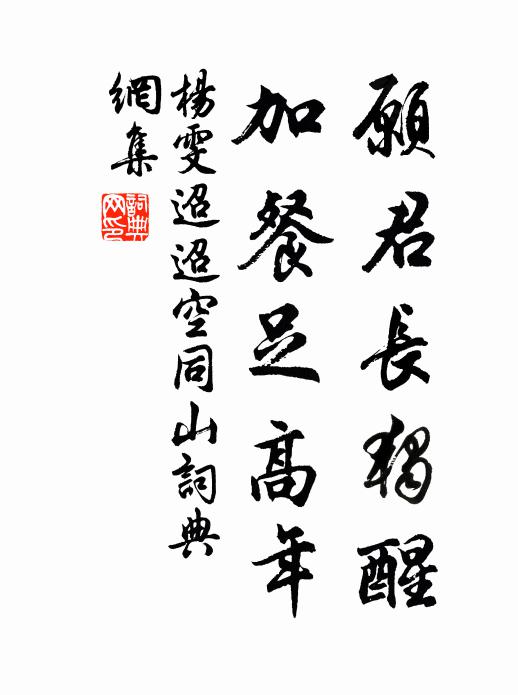 願君長独醒
加餐足高年
楊雯迢迢空同山詞典
網集
詞典
网印